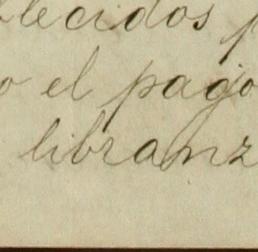 blecidos p
o el pago
libranz